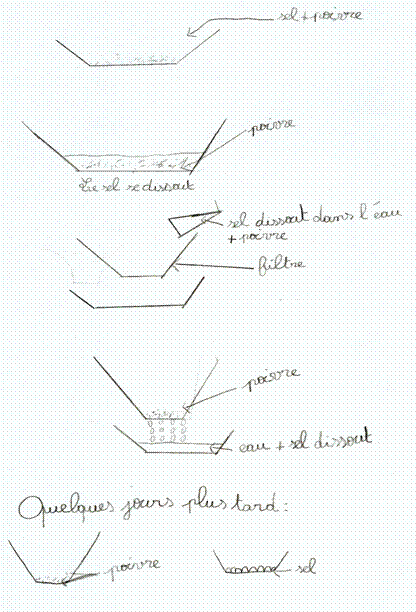 sel + poivre
poivre
Le sel se dissout
sel dissout dans l'éau
+ poivre
filtre
poivre
eau + sel dissout
Quelques jours plus tard :
poivre
sel